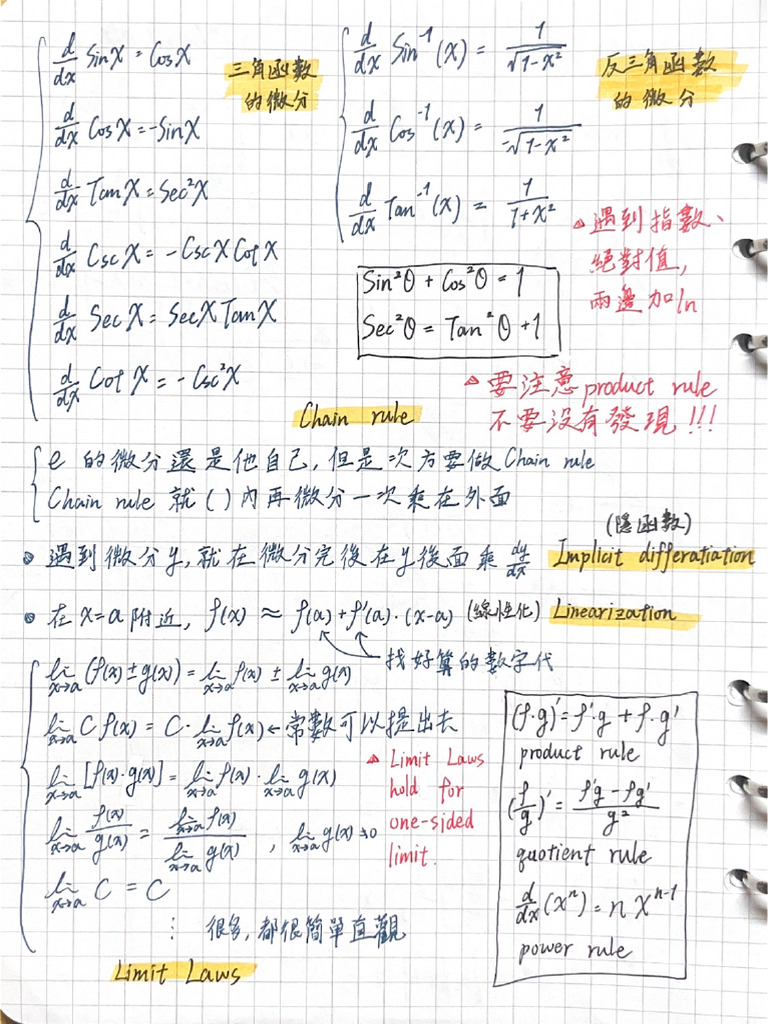 d/dx Sin X = Cos X
三角函數
的微分
d/dx Cos X = -Sin X
d/dx Tan X = Sec²X
d/dx Csc X = -Csc X Cot X
d/dx Sec X = Sec X Tan X
d/dx Cot X = -Csc²X
d/dx Sin⁻¹(x) = 1/√(1-x²)
反三角函數
的微分
d/dx Cos⁻¹(x) = 1/-√(1-x²)
d/dx Tan⁻¹(x) = 1/(1+x²)
△遇到指數、
絕對值,
兩邊加ln
Sin²θ + Cos²θ = 1
Sec²θ = Tan²θ + 1
△要注意product rule
不要沒有發現!!!
Chain rule
e 的微分還是他自己, 但是次方要做Chain rule
Chain rule 就 ( ) 內再微分一次乘在外面
(隱函數)
• 遇到微分y, 就在微分完後在y後面乘 dy/dx Implicit differatiation
• 在 x=a 附近, f(x) ≈ f(a)+f'(a)·(x-a) (線性化) Linearization
找好算的數字代
lim x→a (f(x)±g(x)) = lim x→a f(x) ± lim x→a g(x)
lim x→a C f(x) = C · lim x→a f(x) ← 常數可以提出去
lim x→a [f(x)·g(x)] = lim x→a f(x) · lim x→a g(x)
lim x→a f(x)/g(x) = lim x→a f(x) / lim x→a g(x) , lim x→a g(x) ≠ 0
lim x→a C = C
⋮ 很多, 都很簡單直觀
Limit Laws
△ Limit Laws
hold for
one-sided
limit.
(f·g)' = f'·g + f·g'
product rule
(f/g)' = (f'g - fg')/g²
quotient rule
d/dx (xⁿ) = n xⁿ⁻¹
power rule